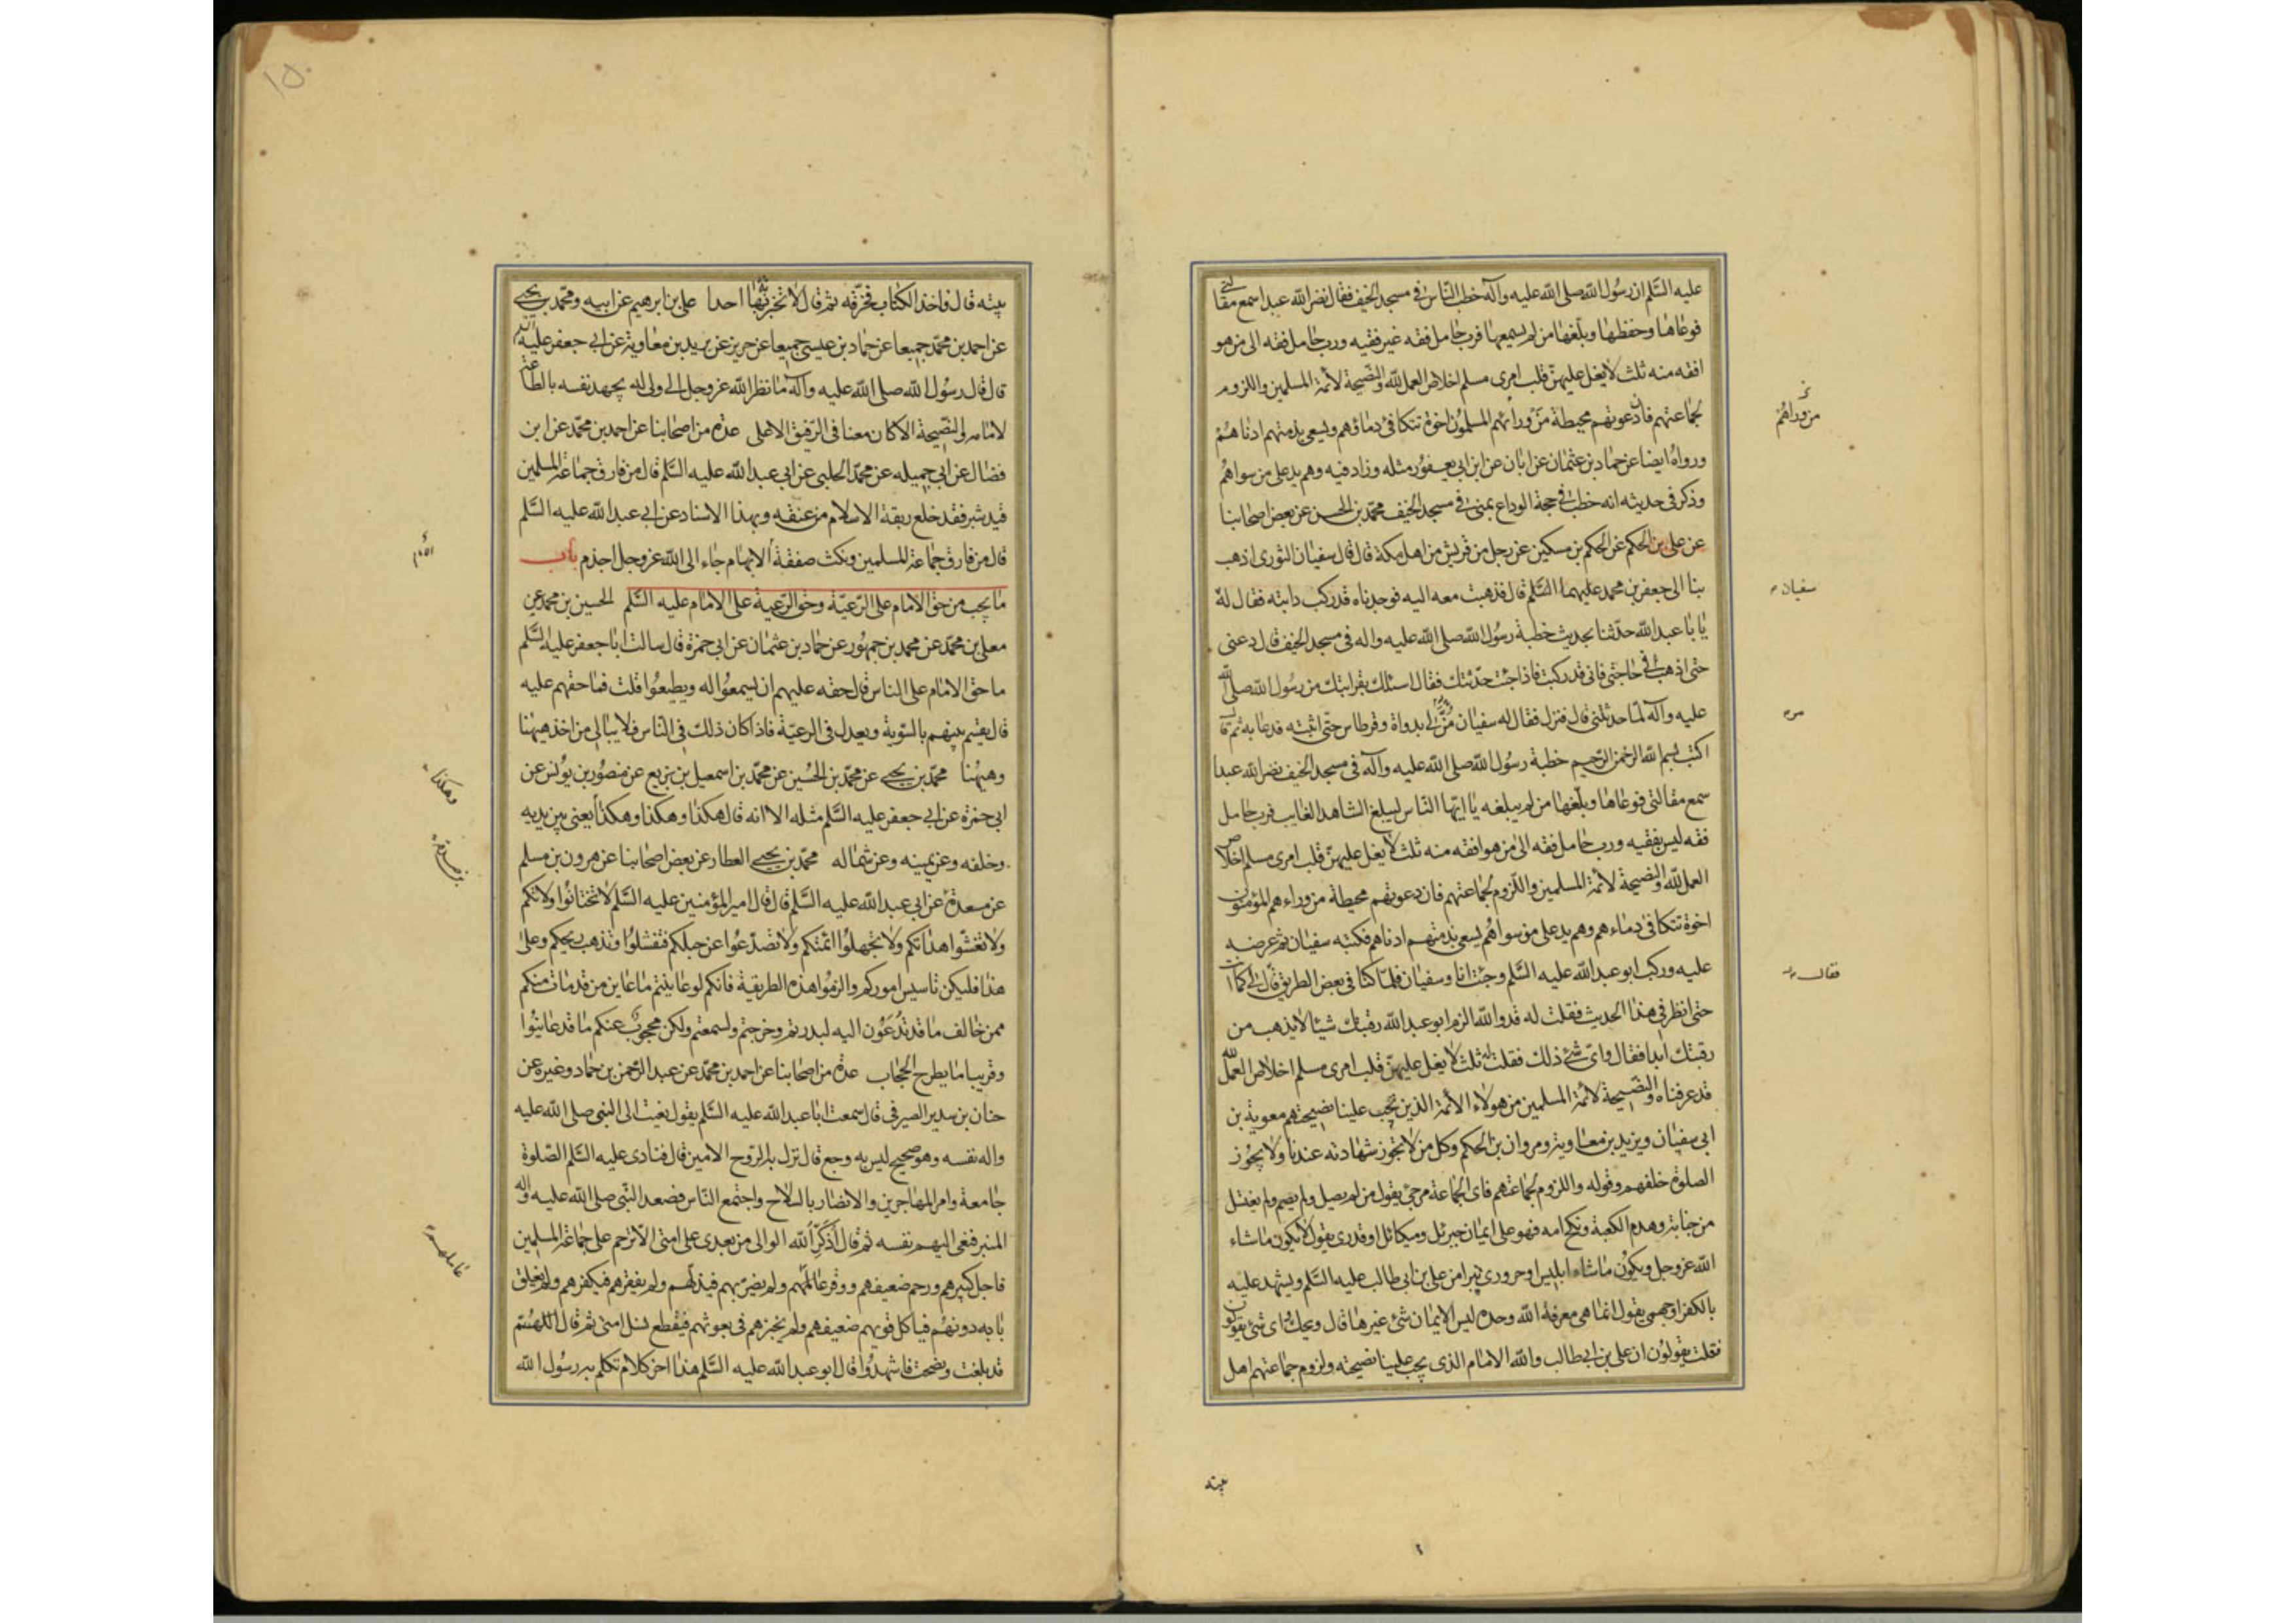 عليه السَّلم ان رسُول الله صلى الله عليه وآله خطب النّاس فى مسجد الخيف فقال نضر الله عبدا سمع مقالتى
فوعاها وحفظها وبلّغها من لم يسمعها فرب حامل فقه غير فقيه ورب حامل فقه الى من هو
افقه منه ثلث لا يغل عليهنّ قلب امرى مسلم اخلاص العمل لله والنّصيحة لائمة المسلمين واللزوم
لجماعتهم فان دعوتهم محيطة من ورائهم المسلمُون اخوة تتكافى دماؤهم ويسعى بذمتهم ادناهم
من ورائهم
ورواه ايضا عن حماد بن عثمان عن ابان عن ابن ابى يعفور مثله وزاد فيه وهم يد على من سواهم
وذكر فى حديثه انه خطب فى حجة الوداع بمنى فى مسجد الخيف محمّد بن الحسن عن بعض اصحابنا
عن على بن الحكم عن الحكم بن مسكين عن رجل من قريش من اهل مكة قال قال سفيان الثورى اذهب
بنا الى جعفر بن محمد عليهما السَّلم قال فذهبت معه اليه فوجدناه قد ركب دابته فقال له
سفيان
يا با عبد الله حدّثنا بحديث خطبة رسُول الله صلى الله عليه واله فى مسجد الخيف قال دعنى
حتى اذهب فى حاجتى فانى قد ركبت فاذا جئت حدّثتك فقال اسئلك بقرابتك من رسُول الله صلى الله
عليه وآله لمّا حدثتنى قال فنزل فقال له سفيان مُر لى بدواة وقرطاس حتّى اثبته فدعا به ثم قال
اكتب بسم الله الرحمن الرّحيم خطبة رسُول الله صلى الله عليه وآله فى مسجد الخيف نضر الله عبدا
سمع مقالتى فوعاها وبلّغها من لم يبلغه يا ايّها النّاس ليبلغ الشاهد الغايب فرب حامل
فقه ليس بفقيه ورب حامل فقه الى من هو افقه منه ثلث لا يغل عليهنّ قلب امرى مسلم اخلاص
العمل لله والنّصيحة لائمة المسلمين واللّزوم لجماعتهم فان دعوتهم محيطة من وراءهم المؤمنون
اخوة تتكافى دماءهم وهم يد على من سواهم يسعى بذمتهم ادناهم فكتبه سفيان ثم عرضه
عليه وركب ابو عبد الله عليه السَّلم وجئت انا وسفيان فلمّا كنا فى بعض الطريق قال لى كما انت
فقال
حتى انظر فى هذا الحديث فقلت له قد والله الزم ابو عبد الله رقبتك شيئا لا يذهب من
رقبتك ابدا فقال واىّ شئ ذلك فقلت له ثلث لا يغل عليهنّ قلب امرى مسلم اخلاص العمل لله
قد عرفناه والنّصيحة لائمة المسلمين من هولاء الائمة الذين تجب علينا نصيحتهم معوية بن
ابى سفيان ويزيد بن معاوية ومروان بن الحكم وكل من لا تجوز شهادته عندنا ولا يجوز
الصلوة خلفهم وقوله واللزوم لجماعتهم فاى الجماعة مرجئ يقول من لم يصل ولم يصم ولم يغتسل
من جنابة وهدم الكعبة ونكح امه فهو على ايمان جبرئل وميكائل او قدرى يقول لا يكون ما شاء
الله عز وجل ويكون ما شاء ابليس او حرورى يتبرا من على بن ابى طالب عليه السَّلم ويشهد عليه
بالكفر او جهمى يقول انما هى معرفة الله وحده ليس الايمان شئ غيرها قال ويحك واى شئ يقولون
فقلت يقولون ان على بن ابى طالب والله الامام الذى يجب علينا نصيحته ولزوم جماعتهم اهل
بيته
١٥
بيته قال فاخذ الكتاب فخرّقه ثم قال لا تخبرن بها احدا على بن ابرهيم عن ابيه ومحمد بن يحيى
عن احمد بن محمّد جميعا عن حماد بن عيسى جميعا عن حريز عن بريد بن معاوية عن ابى جعفر عليه السلم
قال قال رسُول الله صلى الله عليه وآله ما نظر الله عز وجل الى ولى له يجهد نفسه بالطاعة
لامامه والنّصيحة الا كان معنا فى الرّفيق الاعلى عدة من اصحابنا عن احمد بن محمّد عن ابن
فضال عن ابى جميله عن محمّد الحلبى عن ابى عبد الله عليه السَّلم قال من فارق جماعة المسلمين
قيد شبر فقد خلع ربقة الاسلام من عنقه وبهذا الاسناد عن ابى عبد الله عليه السَّلم
قال من فارق جماعة المسلمين ونكث صفقة الابهام جاء الى الله عز وجل اجذم باب
ما يجب من حق الامام على الرّعيّة وحق الرّعية على الامام عليه السَّلم الحسين بن محمد عن
معلى بن محمّد عن محمد بن جمهُور عن حماد بن عثمان عن ابى حمزة قال سالت ابا جعفر عليه السَّلم
ما حق الامام على الناس قال حقه عليهم ان يسمعُوا له ويطيعُوا قلت فما حقهم عليه
قال يقسم بينهم بالسّوية ويعدل فى الرعيّة فاذا كان ذلك فى النّاس فلا يبالى من اخذ هيهنا
وهيهُنا محمّد بن يحيى عن محمّد بن الحُسين عن محمّد بن اسمعيل بن بزيع عن منصُور بن يُونس عن
ابى حمزة عن ابى جعفر عليه السَّلم مثله الا انه قال هكذا وهكذا وهكذا يعنى بين يديه
وهكذا
وخلفه وعن يمينه وعن شماله محمّد بن يحيى العطار عن بعض اصحابنا عن هرون بن مسلم
عن مسعدة عن ابى عبد الله عليه السَّلم قال قال امير المؤمنين عليه السَّلم لا تختانُوا ولاتكم
ولا تغشّوا هداتكم ولا تجهلوا ائمتكم ولا تصدّعُوا عن حبلكم فتفشلُوا وتذهب ريحكم وعلى
هذا فليكن تاسيس اموركم والزمُوا هذه الطريقة فانكم لو عاينتم ما عاين من قد مات منكم
ممن خالف ما قد تُدعَون اليه لبدرتم وخرجتم ولسمعتم ولكن محجوبٌ عنكم ما قد عاينُوا
وقريبا ما يطرح الحجاب عدة من اصحابنا عن احمد بن محمّد عن عبد الرّحمن بن حماد وغيره عن
حنان بن سدير الصيرفى قال سمعت ابا عبد الله عليه السَّلم يقول نعيت الى النبى صلى الله عليه
واله نفسه وهو صحيح ليس به وجع قال نزل به الرّوح الامين قال فنادى عليه السَّلم الصّلوة
جامعة وامر المهاجرين والانصار بالسّلاح واجتمع النّاس فصعد النّبى صلى الله عليه وآله
المنبر فنعى اليهم نفسه ثم قال اُذَكِّرُ الله الوالى من بعدى على امتى الّا ترحم على جماعة المسلمين
فاجل كبيرهم ورحم ضعيفهم ووقر عالمهم ولم يضرّ بهم فيذلّهم ولم يفقرهم فيكفرهم ولم يغلق
بابه دونهُم فياكل قويهم ضعيفهم ولم يخبزهم فى بعوثهم فيقطع نسل امتى ثم قال اللهُمّ
قد بلغت ونصحت فاشهدُوا قال ابو عبد الله عليه السَّلم هذا اخر كلام تكلم به رسُول الله